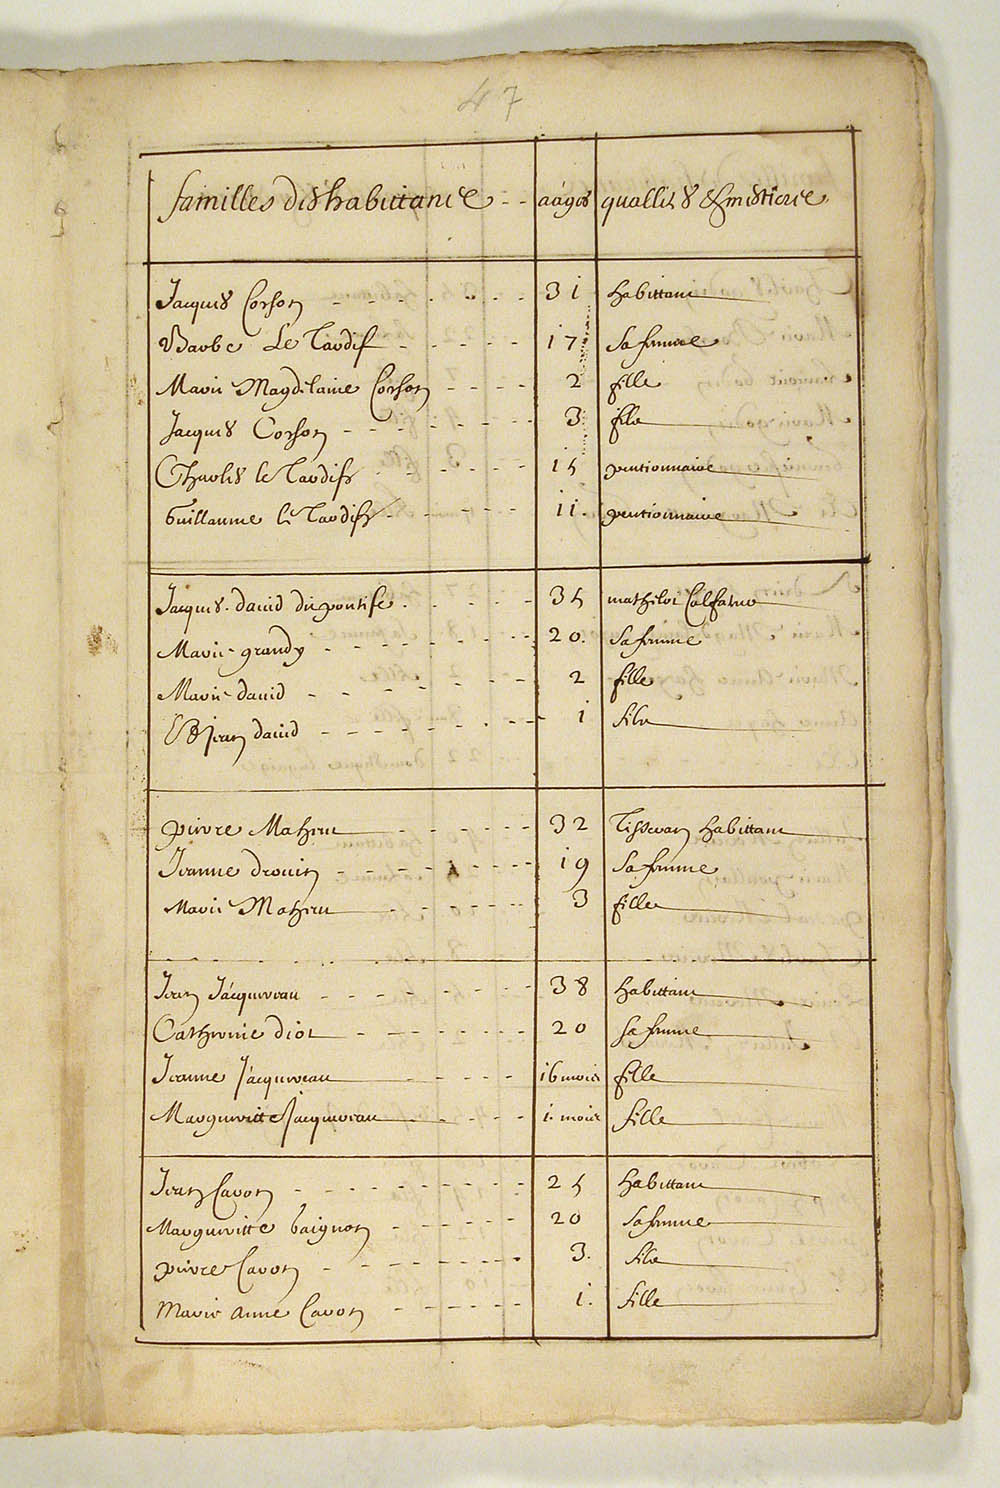 47
familles des habittans aages quallites & mestiers
Jacques Cochon 31 habittant
Barbe Le Tardif 17 sa femme
Marie Magdelaine Cochon 2 fille
Jacques Cochon 3 fils
Charles le Tardif 15 pentionnaire
Guillaume le Tardif 11. pentionnaire
Jacques david dit pontife 35 mathelot Calfateur
Marie grandy 20. sa femme
Marie david 2 fille
Jean david 1 fils
pierre Matheu 32 Tisseran habittant
Jeanne drouin 19 sa femme
Marie Matheu 3 fille
Jean Jacquereau 38 habittant
Catherine diot 20 sa femme
Jeanne Jacquereau 16 mois fille
Margueritte Jacquereau 1. mois fille
Jean Cavon 25 habittant
Margueritte baignon 20 sa femme
pierre Cavon 3. fils
Marie anne Cavon 1. fille